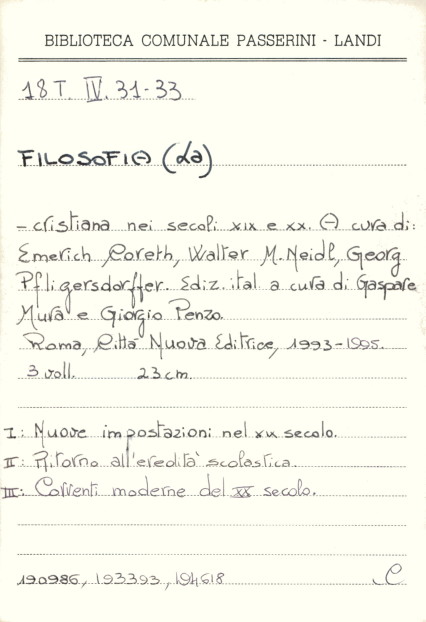 BIBLIOTECA COMUNALE PASSERINI - LANDI
18 T. IV. 31-33
FILOSOFIA (La)
- cristiana nei secoli XIX e XX. A cura di:
Emerich Coreth, Walter M. Neidl, Georg
Pfligersdorffer. Ediz. ital a cura di Gaspare
Mura e Giorgio Penzo.
Roma, Città Nuova Editrice, 1993-1995.
3 voll. 23 cm.
I: Nuove impostazioni nel XIX secolo.
II: Ritorno all'eredità scolastica.
III: Correnti moderne del XX secolo.
190986, 193393, 194618 C